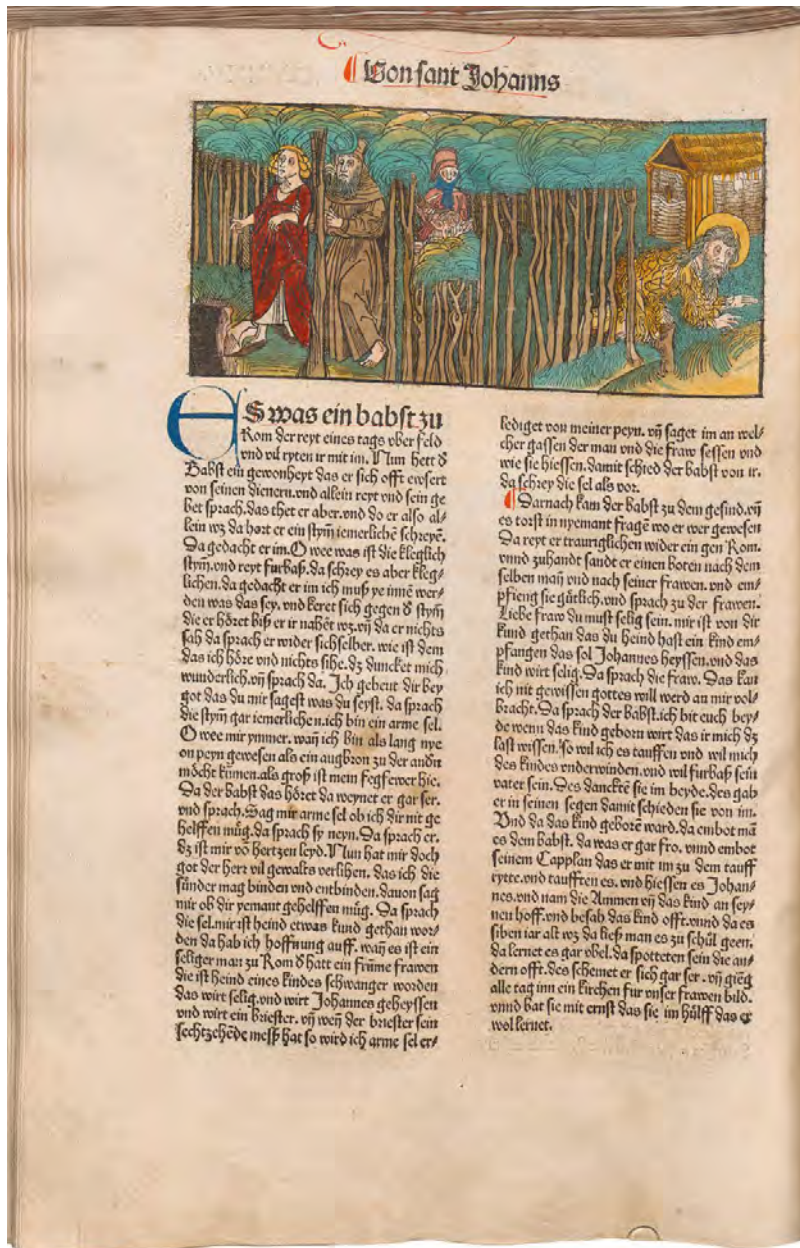 Von sant Johanns
ES was ein babst zu
Rom der reyt eines tags vber feld
vnd vil ryten ir mit im. Nun hett d̕
Babst ein gewonheyt das er sich offt ewsert
von seinen dienern. vnd allein reyt vnd sein ge
bet sprach. das thet er aber. vnd do er also al⸗
lein wz da hort er ein stym̄ iemerlichē schreyē.
Da gedacht er im. O wee was ist die kleglich
stym̄. vnd reyt furbaß. da schrey es aber kleg⸗
lichen. da gedacht er im ich muß ye innē wer⸗
den was das sey. vnd keret sich gegen d̕ stym̄
die er hӧret biß er ir nahēt wz. vn̄ da er nichts
sah da sprach er wider sichselber. wie ist dem
das ich hӧre vnd nichts sihe. dz duncket mich
wunderlich. vn̄ sprach da. Ich gebeut dir bey
got das du mir sagest was du seyst. da sprach
die stym̄ gar iemerlichen. ich bin ein arme sel.
O wee mir ymmer. wan̄ ich bin als lang nye
on peyn gewesen als ein augbron zu der andn̄
mӧcht kūmen. als groß ist mein fegfewer hie.
Da der babst das hӧret da weynet er gar ser.
vnd sprach. Sag mir arme sel ob ich dir nit ge
helffen müg. da sprach sy neyn. Da sprach er.
dz ist mir vō hertzen leyd. Nun hat mir doch
got der herr vil gewalts verlihen. das ich die
sünder mag binden vnd entbinden. dauon sag
mir ob dir yemant gehelffen müg. Da sprach
die sel. mir ist heind etwas kund gethan wor⸗
den da hab ich hoffnung auff. wan̄ es ist ein
seliger man zu Rom d̕ hatt ein frūme frawen
die ist heind eines kindes schwanger worden
das wirt selig. vnd wirt Johannes geheyssen
vnd wirt ein briester. vn̄ wen̄ der briester sein
sechtzehēde meß hat so wird ich arme sel er⸗
lediget von meiner peyn. vn̄ saget im an wel⸗
cher gassen der man vnd die fraw sessen vnd
wie sie hiessen. damit schied der babst von ir.
da schrey die sel als vor.
Darnach kam der babst zu dem gesind. vn̄
es torst in nyemant fragē wo er wer gewesen
Da reyt er trauriglichen wider ein gen Rom.
vnnd zuhandt sandt er einen boten nach dem
selben man̄ vnd nach seiner frawen. vnd em⸗
pfieng sie gütlich. vnd sprach zu der frawen.
Liebe fraw du must selig sein. mir ist von dir
kund gethan das du heind hast ein kind em⸗
pfangen das sol Johannes heyssen. vnd das
kind wirt selig. Da sprach die fraw. Das kan
ich nit gewissen gottes will werd an mir vol⸗
bracht. Da sprach der babst. ich bit euch bey⸗
de wenn das kind geborn wirt das ir mich dz
last wissen. so wil ich es tauffen vnd wil mich
des kindes vnderwinden. vnd wil furbaß sein
vater sein. Des dancktē sie im beyde. des gab
er in seinen segen damit schieden sie von im.
Vnd da das kind geborē ward. da embot mā
es dem babst. da was er gar fro. vnnd embot
seinem Capplan das er mit im zu dem tauff
rytte. vnd taufften es. vnd hiessen es Johan⸗
nes. vnd nam die Ammen vn̄ das kind an sey⸗
nen hoff. vnd besah das kind offt. vnnd da es
siben iar alt wz da ließ man es zu schůl geen.
da lernet es gar vbel. da spotteten sein die an⸗
dern offt. des schemet er sich gar ser. vn̄ giēg
alle tag inn ein kirchen fur vnser frawen bild.
vnnd bat sie mit ernst das sie im hülff das er
wol lernet.